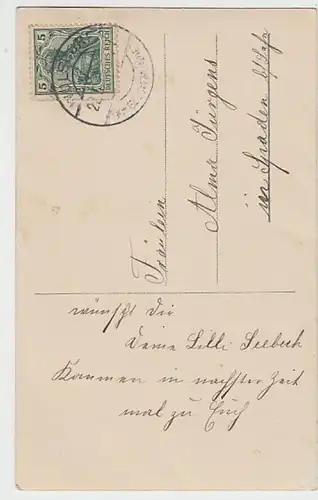 5 DEUTSCHES REICH 5
Fräulein
Alma Jürgens
in Spaden
wünscht Dir
Deine Lilli Seebeck
Kommen in nächster Zeit
mal zu Euch